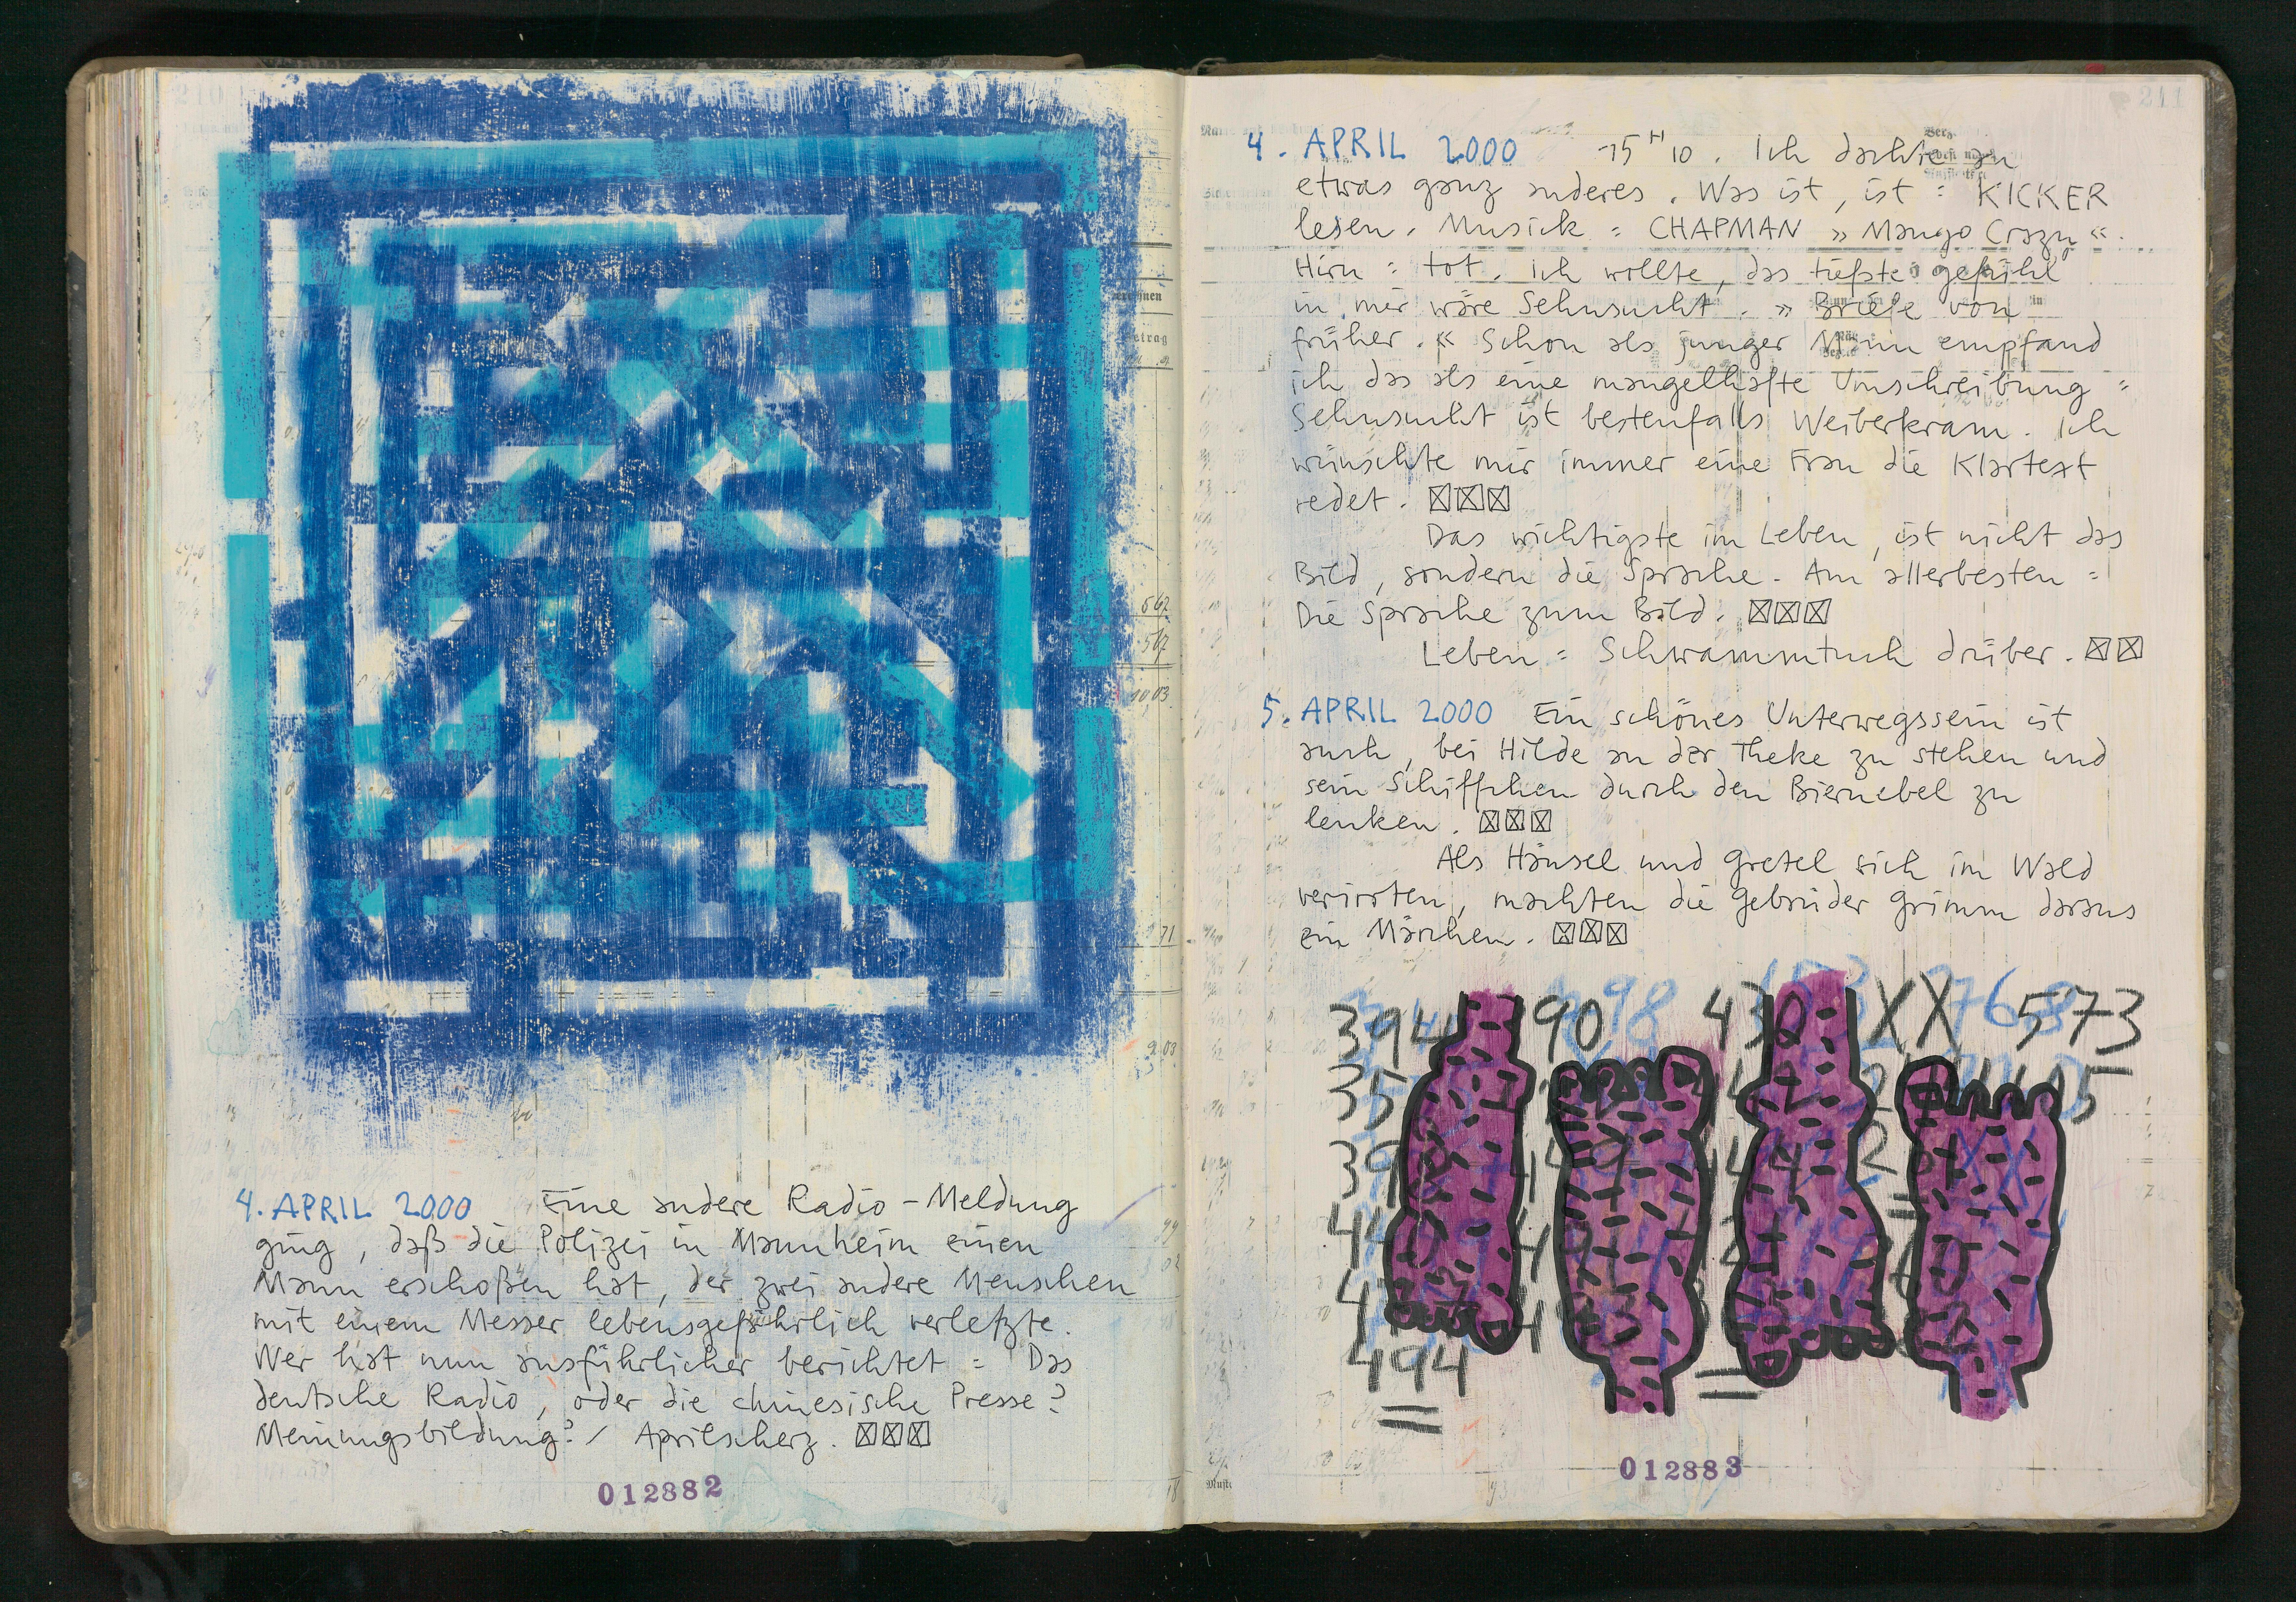 4. APRIL 2000 Eine andere Radio-Meldung
ging, daß die Polizei in Mannheim einen
Mann erschoßen hat, der zwei andere Menschen
mit einem Messer lebensgefährlich verletzte.
Wer hat nun ausführlicher berichtet = Das
deutsche Radio, oder die chinesische Presse?
Meinungsbildung? / Aprilscherz. ☒☒☒
012882
211
4. APRIL 2000 15 H 10. Ich dachte an
etwas ganz anderes. Was ist, ist = KICKER
lesen. Musick = CHAPMAN » Mango Crazy «.
Hirn = tot. Ich wollte, das tiefste gefühl
in mir wäre Sehnsucht. » Briefe von
früher. « Schon als junger Mann empfand
ich das als eine mangelhafte Umschreibung =
Sehnsucht ist bestenfalls Weiberkram. Ich
wünschte mir immer eine Frau die Klartext
redet. ☒☒☒
Das wichtigste im Leben, ist nicht das
Bild, sondern die Sprache. Am allerbesten =
Die Sprache zum Bild. ☒☒☒
Leben = Schwammtuch drüber. ☒☒
5. APRIL 2000 Ein schönes Unterwegssein ist
auch, bei Hilde an der Theke zu stehen und
sein Schiffchen durch den Biernebel zu
lenken. ☒☒☒
Als Hänsel und Gretel sich im Wald
verirrten, machten die Gebrüder Grimm daraus
ein Märchen. ☒☒☒
394 90 430 XX 573
35
494
012883